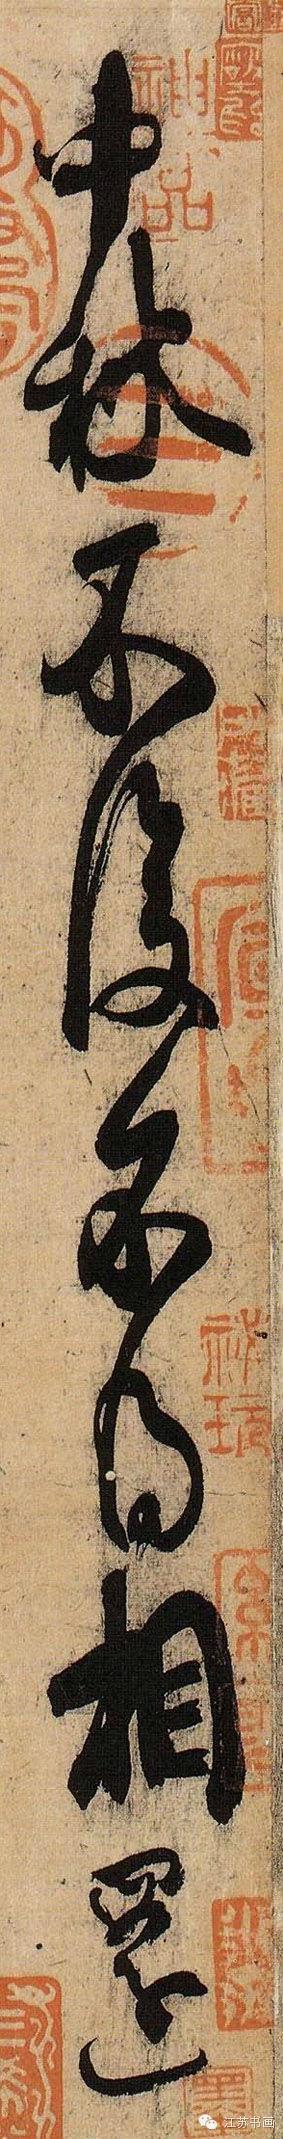 中秋不復不得相還
神品
江苏书画